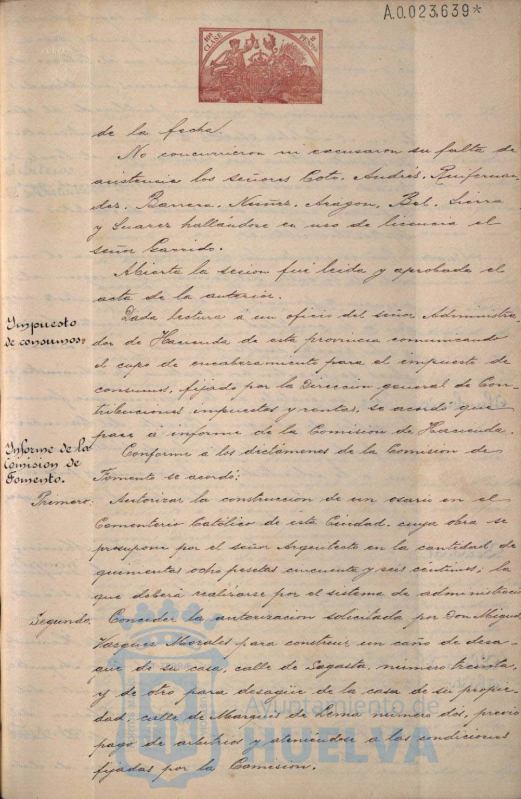 A.0.023.639*
10ª CLASE 2 PESETAS
de la fecha.
No concurrieron ni excusaron su falta de
asistencia los señores Coto, Andrés, Renfernan-
dez, Barrera, Nuñez, Aragon, Bel, Sierra
y Suarez hallándose en uso de licencia el
señor Garrido.
Abierta la sesion fué leida y aprobada el
acta de la anterior.
Impuesto
de consumos.
Dada lectura á un oficio del señor Administra
dor de Hacienda de esta provincia comunicando
el cupo de encabezamiento para el impuesto de
consumos, fijado por la Direccion general de Con-
tribuciones impuestos y rentas, se acordó que
pase á informe de la Comision de Hacienda.
Informe de la
Comision de
Fomento.
Conforme á los dictámenes de la Comision de
Fomento se acordó:
Primero: Autorizar la construccion de un osario en el
Cementerio Católico de esta Ciudad, cuya obra se
presupone por el señor Arquitecto en la cantidad de
quinientas ocho pesetas cincuenta y seis céntimos; la
que deberá realizarse por el sistema de administració
Segundo: Conceder la autorizacion solicitada por Don Miguel
Vasquez Morales para construir un caño de desa-
güe de su casa, calle de Sagasta, número treinta,
y de otro para desagüe de la casa de su propie-
dad, calle de Marqués de Dema número dós, previo
pago de arbitrios y ateniéndose á las condiciones
fijadas por la Comision.
Ayuntamiento de
HUELVA